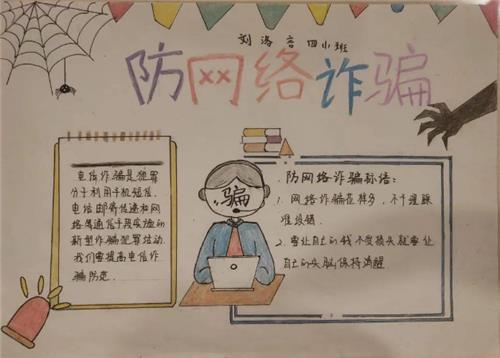 刘 言 四小班
防网络诈骗
电信诈骗是犯罪
分子利用手机短信.
电话邮寄传递和网
络等通信手段实施的
新型诈骗犯罪活动.
我们要提高电信诈
骗防范.
骗
防网络诈骗标语:
1. 网络诈骗花样多, 不予理睬
准没错.
2. 要让自己的钱不受损失就要让
自己的头脑保持清醒